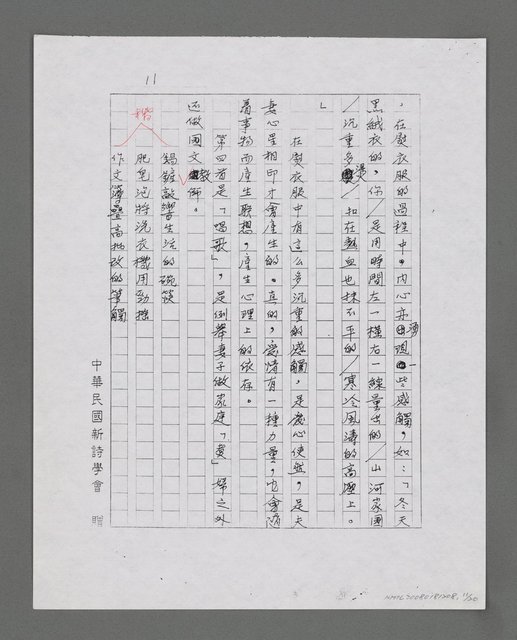 11
，在熨衣服的過程中。內心亦湧現一些感觸，如：「冬天
黑絨衣的，你／是用時間左一橫右一線量出的／山河家國
／沉重多縐　扣在熱血也抹不平的／寒冷風濤的高壓上。
」
在熨衣服中有這么多沉重的感觸，是愛心使然，是夫
妻心呈相印才會產生的。真的，愛情有一種力量，也會隨
着事物而產生聯想，產生心理上的依存。
第四首是「唱歌」，是例舉妻子做家庭「煮」婦之外
还做國文教師。
鍋鏟敲響生活的碗筷
肥皂泡將洗衣機用勁搓
作文簿疊高批改的筆觸
中華民國新詩學會　贈
11/20